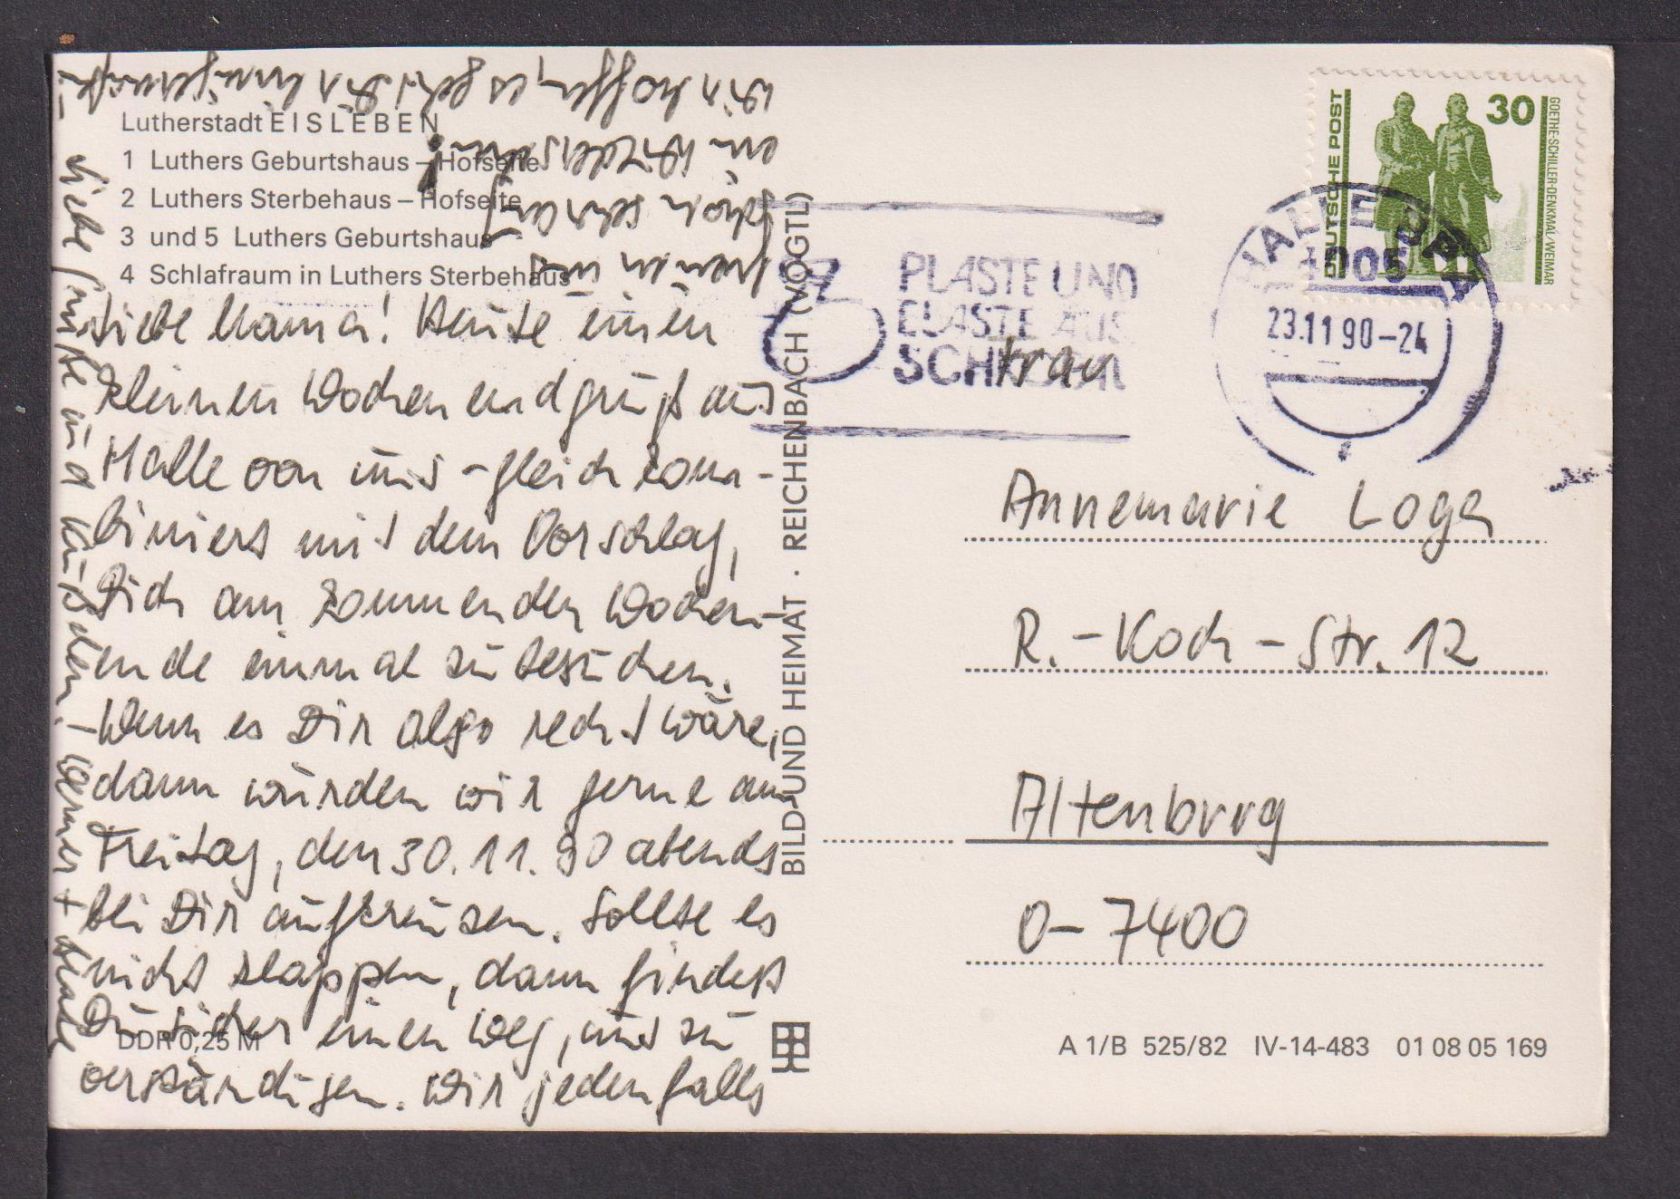 Lutherstadt EISLEBEN
1 Luthers Geburtshaus – Hofseite
2 Luthers Sterbehaus – Hofseite
3 und 5 Luthers Geburtshaus
4 Schlafraum in Luthers Sterbehaus
Liebe Mama! Heute einen
kleinen Wochenendgruß aus
Halle von uns – gleich kom-
biniert mit dem Vorschlag,
Dich am kommenden Wochen-
ende einmal zu besuchen.
Wenn es Dir also recht wäre,
dann würden wir gerne am
Freitag, den 30.11.90 abends
bei Dir aufkreuzen. Sollte es
nicht klappen, dann findest
Du sicher einen Weg, uns zu
verständigen. Wir jedenfalls
freuen uns
schon sehr auf
ein Wiedersehen!
Wir hoffen, es geht Dir einigermaßen –
Liebe Grüße und Küßchen! – Werner +
DDR 0,25 M
BILD UND HEIMAT · REICHENBACH (VOGTL)
PLASTE UND
ELASTE AUS
SCHKOPAU
HALLE
4005
23.11.90–24
DEUTSCHE POST
30
GOETHE-SCHILLER-DENKMAL/WEIMAR
Frau
Annemarie Loga
R.-Koch-Str. 12
Altenburg
O-7400
A 1/B 525/82 IV-14-483 01 08 05 169